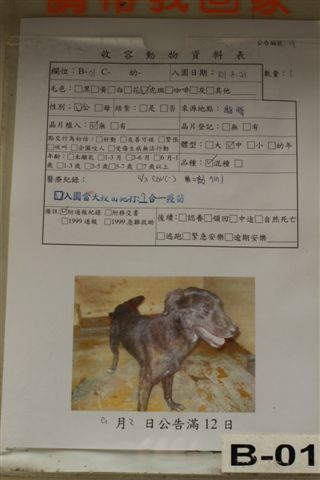 請帶我回家
公告編號:19
收容動物資料表
欄位:B-01 C- 幼- 入園日期:101.9.21 數量:1
毛色:□黑□黃□白□花☑虎斑□咖啡□灰□其他
性別:☑公□母 結紮:□是 □否 來源地點:
晶片植入:☑無□有 晶片登記:□無 □有
點交行為初估:□好動 □友善可親 □緊張
□吠叫 □企圖咬人 □受傷生病無法行動
體型:□大☑中□小□幼年
年齡:□未離乳 □1-3月 □3-6月 □6月-1
歲 □1-3歲 □3-5歲 □5-7歲 □7歲以上
品種:☑混種□
醫療紀錄: CDV(-)
☑入園當天投藥
合一疫苗
備註☑附通報紀錄 □附移交書
□1999通報 □1999急難救助
後續:□認養□領回□中途□自然死亡
□逃跑□緊急安樂□逾期安樂
月 日公告滿12日
B-01